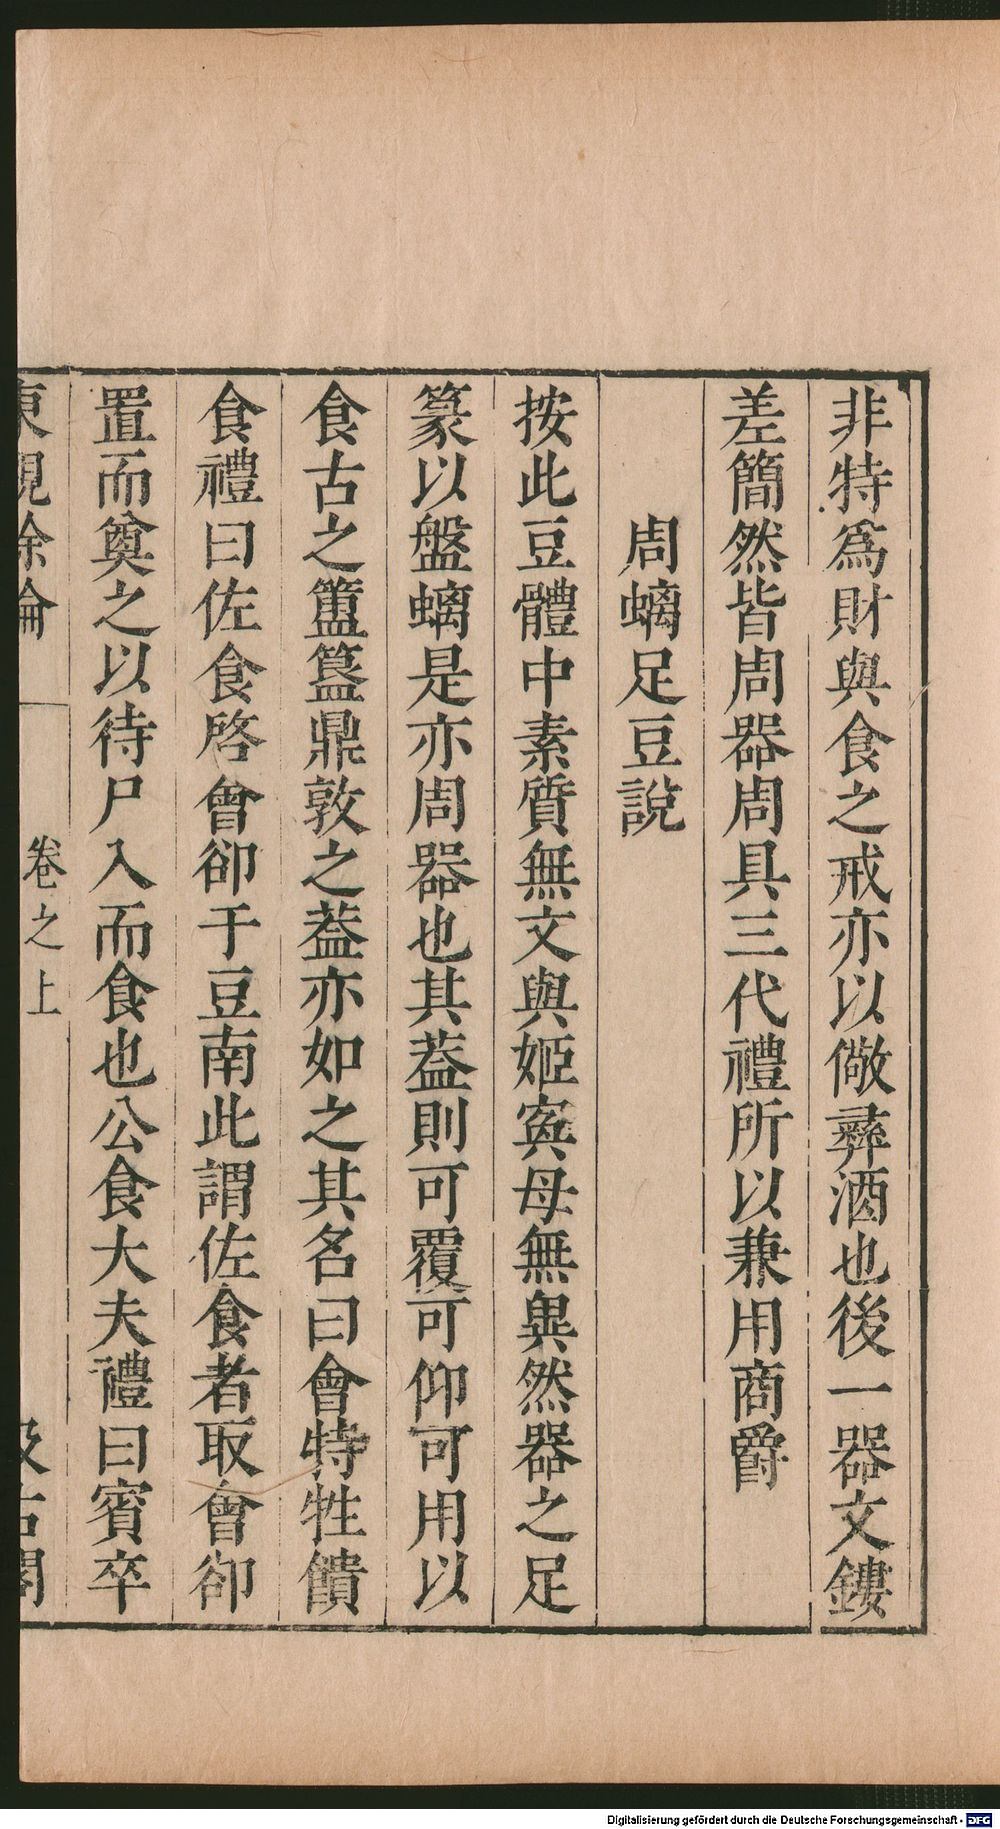 非特爲財與食之戒亦以儆彞酒也後一器文鏤
差簡然皆周器周具三代禮所以兼用商爵
周螭足豆說
按此豆體中素質無文與姬寏母無異然器之足
篆以盤螭是亦周器也其葢則可覆可仰可用以
食古之簠簋鼎敦之葢亦如之其名曰會特牲饋
食禮曰佐食啓會卻于豆南此謂佐食者取會卻
置而奠之以待尸入而食也公食大夫禮曰賓卒
東觀余論 卷之上 汲古閣
Digitalisierung gefördert durch die Deutsche Forschungsgemeinschaft - DFG